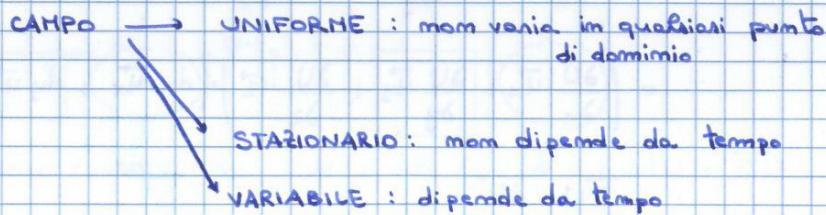 CAMPO → UNIFORME : non varia in qualsiasi punto
di dominio
STAZIONARIO : non dipende da tempo
VARIABILE : dipende da tempo